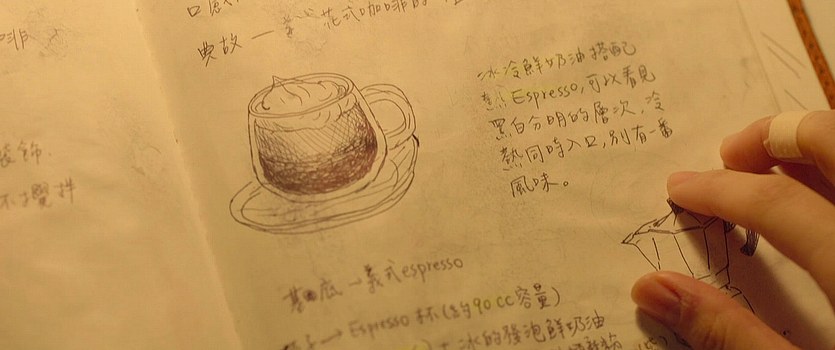 啡
裝飾.
不攪拌
典故一
花式咖啡的
冰冷鮮奶油搭配
熱Espresso,可以看見
黑白分明的層次,冷
熱同時入口,別有一番
風味。
基底→義式espresso
杯子→Espresso杯(約90cc容量)
冰的發泡鮮奶油